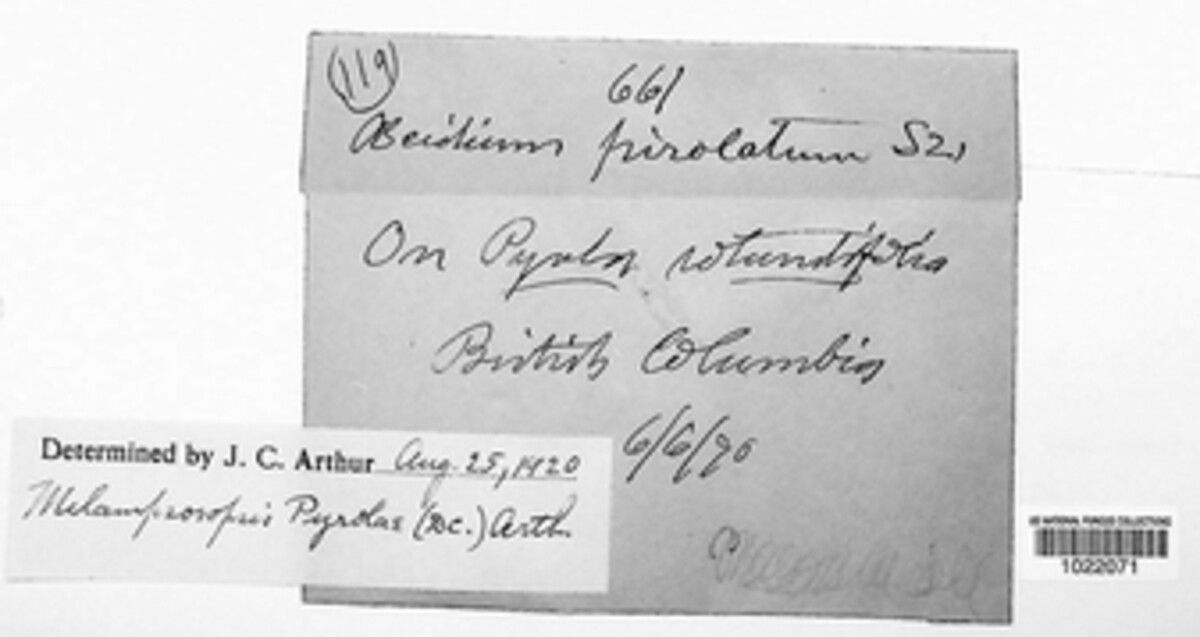 (119)
661
Aecidium pirolatum Sz.
On Pyrola rotundifolia
British Columbia
6/6/90
Determined by J. C. Arthur Aug. 25, 1920
Melampsoropsis Pyrolae (DC.) Arth.
US NATIONAL FUNGUS COLLECTIONS
1022071